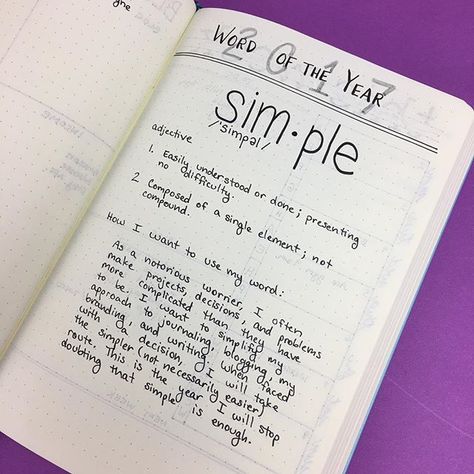 ghe
2017
WORD OF THE YEAR
sim·ple
/'simpəl/
adjective
1. Easily understood or done; presenting
no difficulty.
2 Composed of a single element; not
compound.
How I want to use my word:
As a notorious worrier, I often
make projects, decisions, and problems
more complicated than they have
to be. I want to simplify my
approach to journaling, blogging, my
branding, and writing. When faced
with a decision, I will take
the simpler (not necessarily easier)
route. This is the year I will stop
doubting that simple is enough.